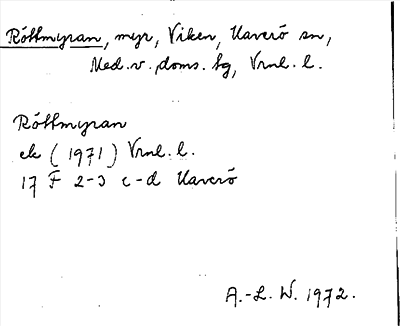 Råttmyran, myr, Viken, Haverö sn,
Med. v. doms. tg, Vrnl. l.
Råttmyran
ek (1971) Vrnl. l.
17 F 2-3 c-d Haverö
A.-L. W. 1972.